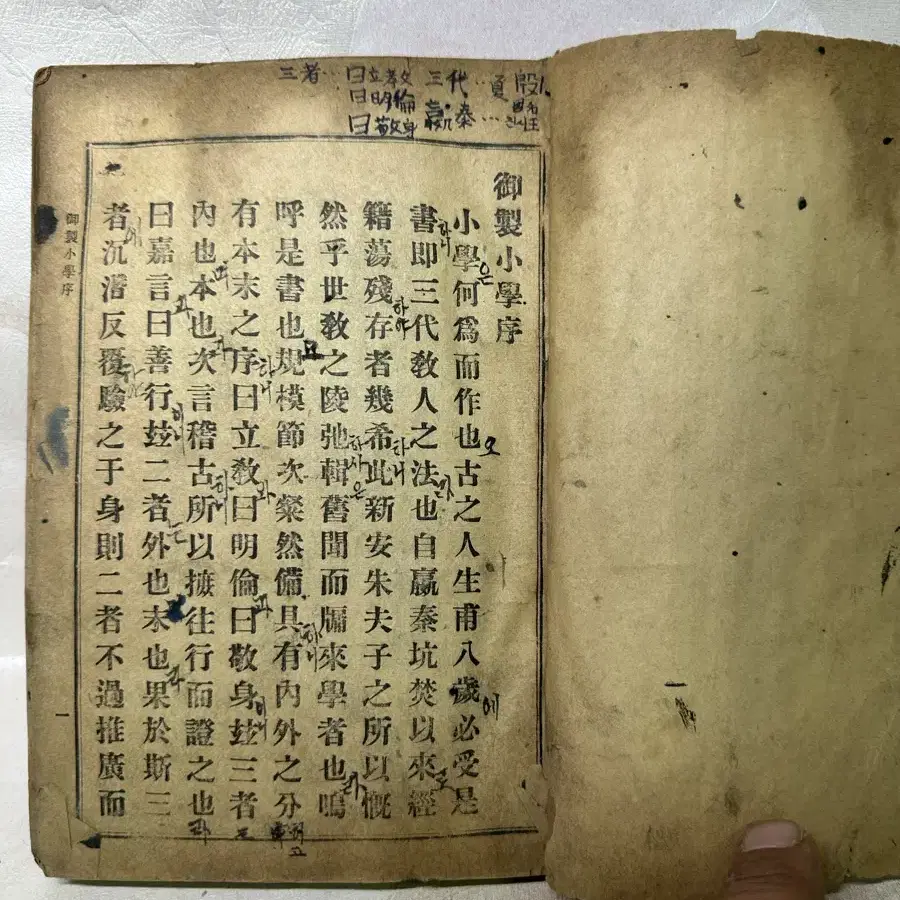 三者 曰立教 三代 夏 殷
曰明倫
曰敬身 嬴秦
御製小學序
小學何爲而作也古之人生甫八歲必受是
書即三代敎人之法也自嬴秦坑焚以來經
籍蕩殘存者幾希此新安朱夫子之所以慨
然乎世敎之陵弛輯舊聞而牖來學者也嗚
呼是書也規模節次粲然備具有內外之分
有本末之序曰立敎曰明倫曰敬身玆三者
內也本也次言稽古所以摭往行而證之也
曰嘉言曰善行玆二者外也末也果於斯三
者沉潛反覆驗之于身則二者不過推廣而
御製小學序
一